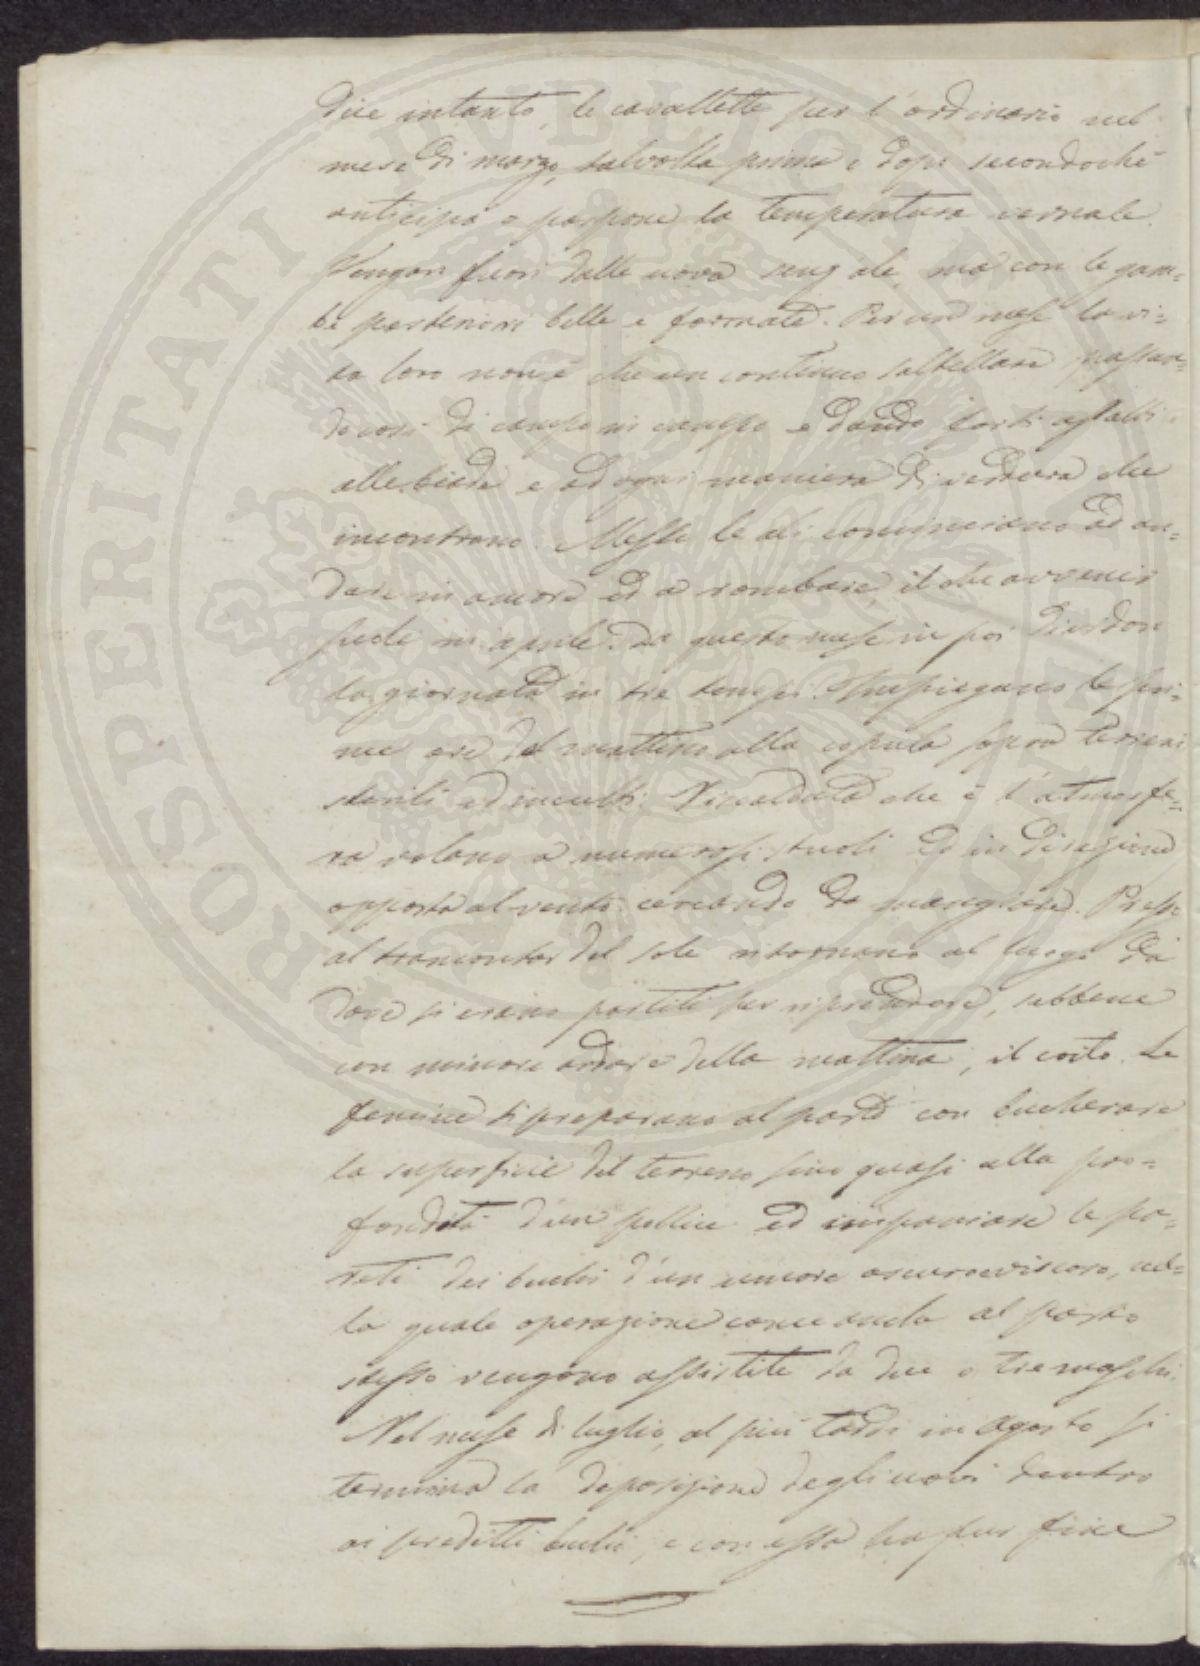 dice intanto, le cavallette per l'ordinario nel
mese di marzo, talvolta prima o dopo secondochè
anticipa o pospone la temperatura vernale.
Vengon fuori dalle uova senz'ale, ma con le gam=
be posteriori belle e formate. Per un mese la vi=
ta loro non è che un continuo saltellare passan=
do così di campo in campo e dando forti assalti
alle biade e ad ogni maniera di verdura che
incontrano. Messe le ali cominciano ad an=
dare in amore ed a rombare, il che avvenir
suole in aprile. Da questo mese in poi dividon
la giornata in tre tempi. Impiegano le pri=
me ore del mattino alla copula sopra terreni
sterili ed inculti. Riscaldata che è l'atmosfe=
ra volano a numerosi stuoli ed in direzione
opposta al vento cercando da mangiare. Presso
al tramontar del sole ritornano al luogo da
dove si erano partite per riprendere, sebbene
con minore ardore della mattina, il coito. Le
femine si preparano al parto con bucherare
la superficie del terreno sino quasi alla pro=
fondità d'un pollice ed impaniare le pa=
reti dei buchi d'un umore oscuro e viscoso, nel=
la quale operazione come anche al parto
stesso vengono assistite da due o tre maschi.
Nel mese di luglio, al più tardi in Agosto si
termina la deposizione degli uovi dentro
ai predetti buchi, e con essa ha pur fine
PROSPERITATI PVBLICAE